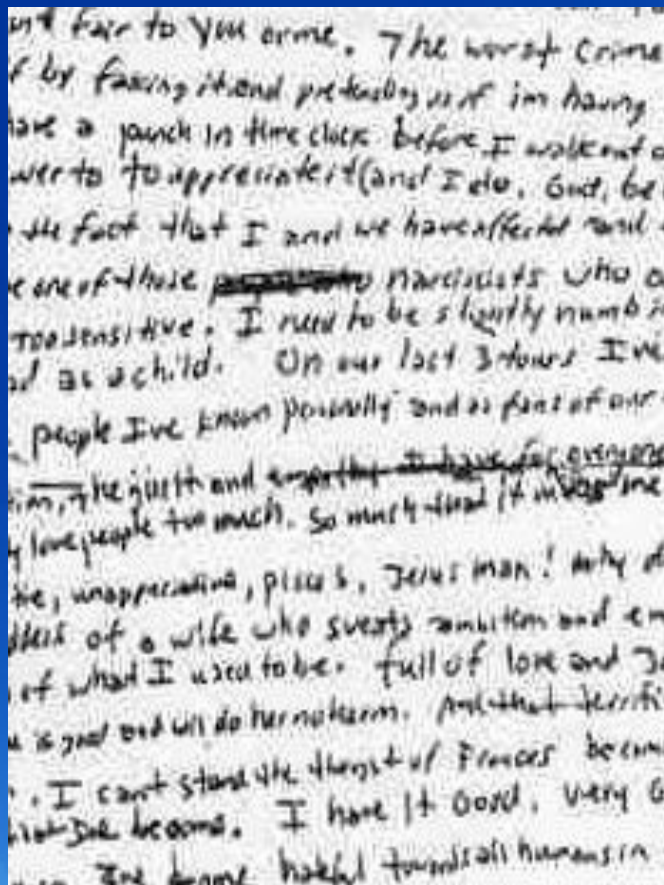 fair to you or me. The worst crime
by faking it and pretending as if im having
have a punch in time clock before I walk out
to to appreciate it (and I do, God, be
the fact that I and we have affected and
one of those narcissists who
too sensitive. I need to be slightly numb
as a child. On our last 3 tours I've
people I've known personally and as fans of our
the guilt and empathy I have for everyone
love people too much. So much that it me
unappreciative, pisces, Jesus man! why
of a wife who sweats ambition and
of what I used to be. full of love and
is good and will do her no harm. And that
I can't stand the thought of Frances
become. I have it Good, very
hateful towards all humans in